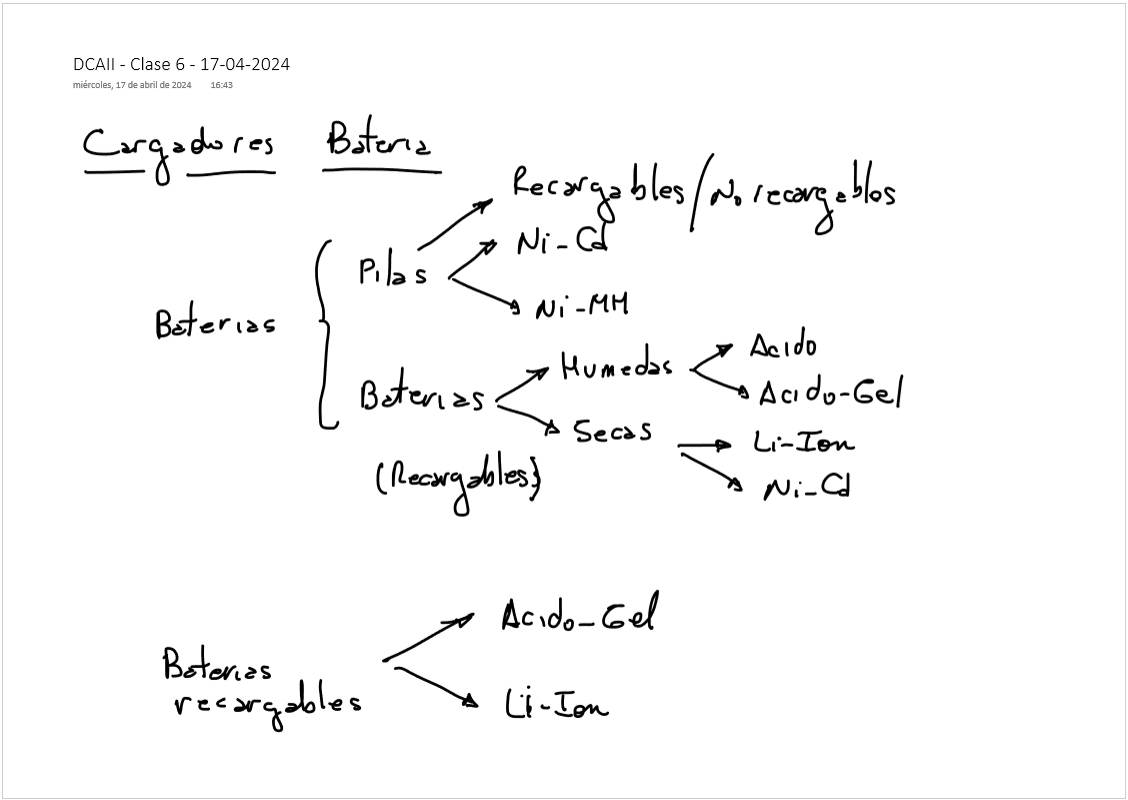 DCAII - Clase 6 - 17-04-2024
miércoles, 17 de abril de 2024 16:43
Cargadores Bateria
Recargables/No recargables
Pilas
Ni-Cd
Ni-MH
Baterias
Baterias
(Recargables)
Humedas
Acido
Acido-Gel
Secas
Li-Ion
Ni-Cd
Baterias
recargables
Acido-Gel
Li-Ion